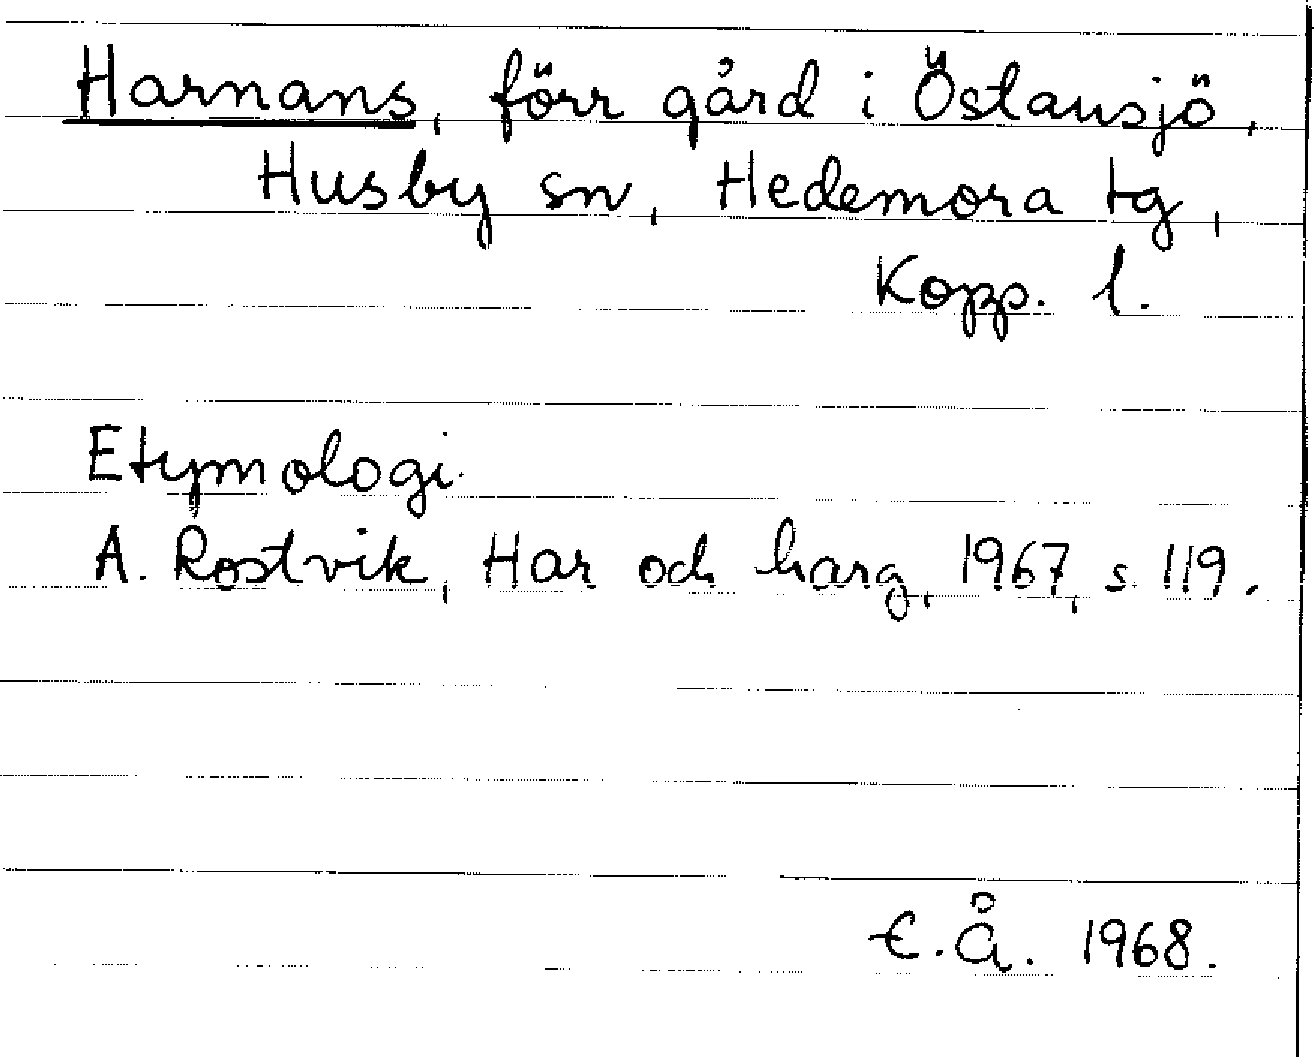 Harnans, förr gård i Östansjö,
Husby sn, Hedemora tg,
Kopp. l.
Etymologi.
A. Rostvik, Har och harg, 1967, s. 119.
E. Å. 1968.